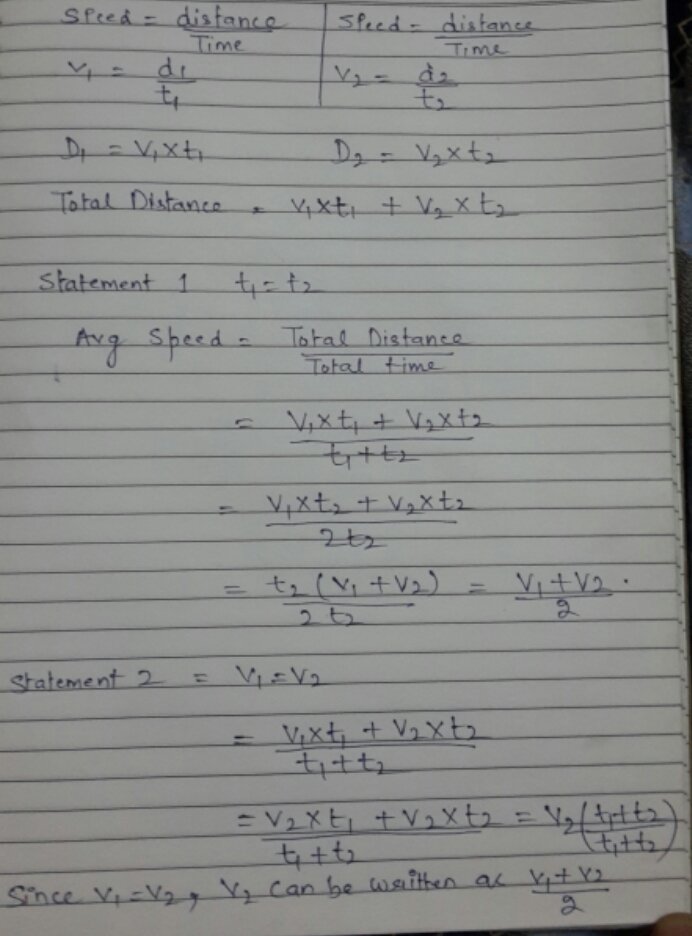 Speed = distance/Time | Speed = distance/Time
V₁ = d₁/t₁ | V₂ = d₂/t₂
D₁ = V₁×t₁ D₂ = V₂×t₂
Total Distance = V₁×t₁ + V₂×t₂
Statement 1 t₁=t₂
Avg Speed = Total Distance/Total time
= V₁×t₁ + V₂×t₂/t₁+t₂
= V₁×t₂ + V₂×t₂/2t₂
= t₂(V₁+V₂)/2t₂ = V₁+V₂/2.
Statement 2 = V₁=V₂
= V₁×t₁ + V₂×t₂/t₁+t₂
= V₂×t₁ + V₂×t₂/t₁+t₂ = V₂(t₁+t₂)/(t₁+t₂)
Since V₁=V₂, V₂ can be written as V₁+V₂/2